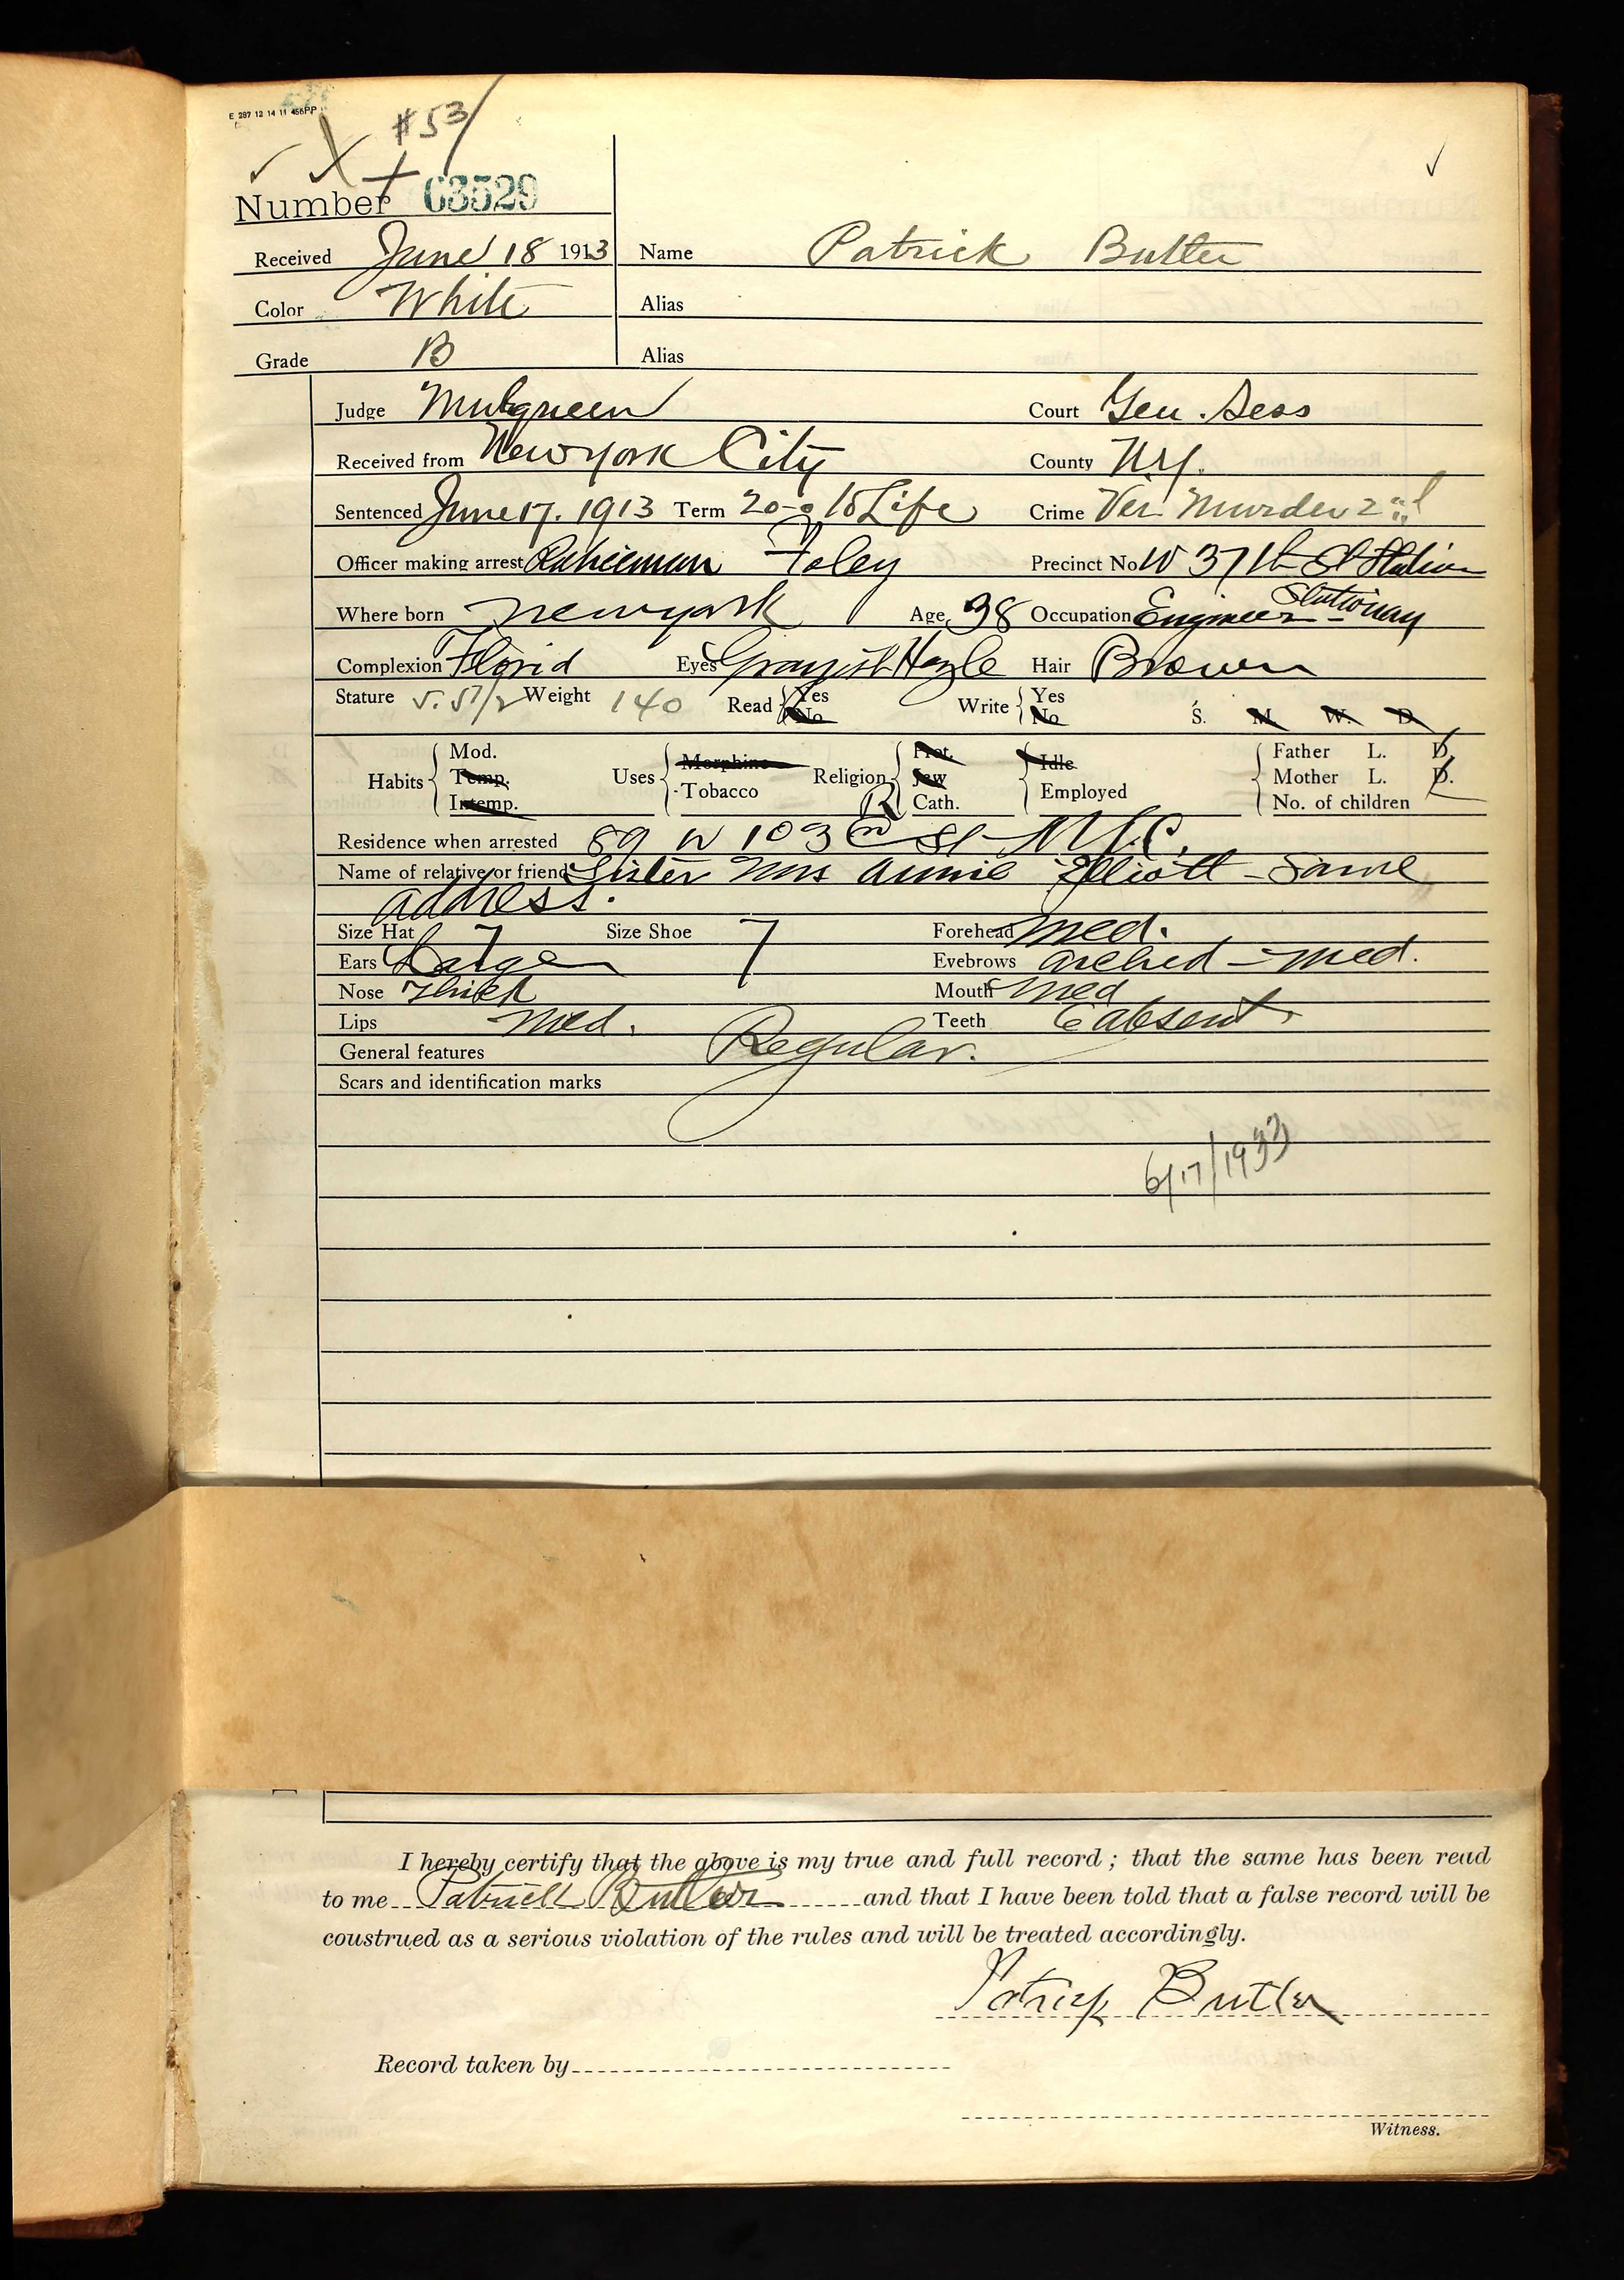 E 287 12 14 11 456PP
#53
Number 63529
Received June 18 1913 Name Patrick Butler
Color White Alias
Grade B Alias
Judge Mulqueen Court Gen. Sess
Received from New York City County N.Y.
Sentenced June 17. 1913 Term 20-0 to Life Crime Ver. Murder 2nd
Officer making arrest Policeman Foley Precinct No W 37th St Station
Where born New York Age 38 Occupation Engineer Stationary
Complexion Florid Eyes Grayish Hazle Hair Brown
Stature 5. 5 1/2 Weight 140 Read Yes No Write Yes No S. M. W. D.
Habits Mod. Temp. Intemp. Uses Morphine Tobacco Religion Prot. Jew R Cath. Idle Employed Father L. D. Mother L. D. No. of children
Residence when arrested 89 W 103 St N.Y.C.
Name of relative or friend Sister Mrs Annie Elliott - Same
address.
Size Hat 7 Size Shoe 7 Forehead Med.
Ears Large Eyebrows arched - med.
Nose Thick Mouth Med
Lips Med. Teeth 6 absent
General features Regular.
Scars and identification marks
6/17/1933
I hereby certify that the above is my true and full record; that the same has been read
to me Patrick Butler and that I have been told that a false record will be
coustrued as a serious violation of the rules and will be treated accordingly.
Patrick Butler
Record taken by
Witness.